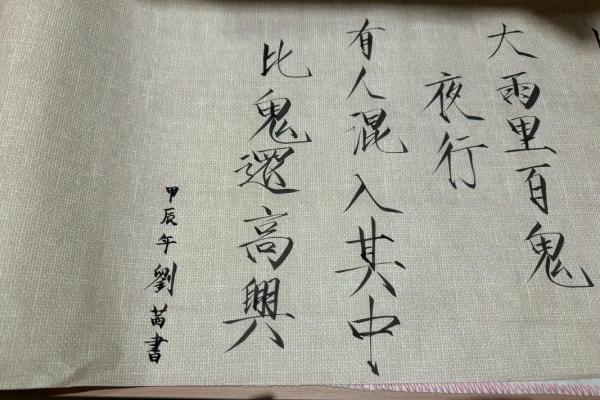 大雨里百鬼
夜行
有人混入其中
比鬼還高興
甲辰年劉苗書